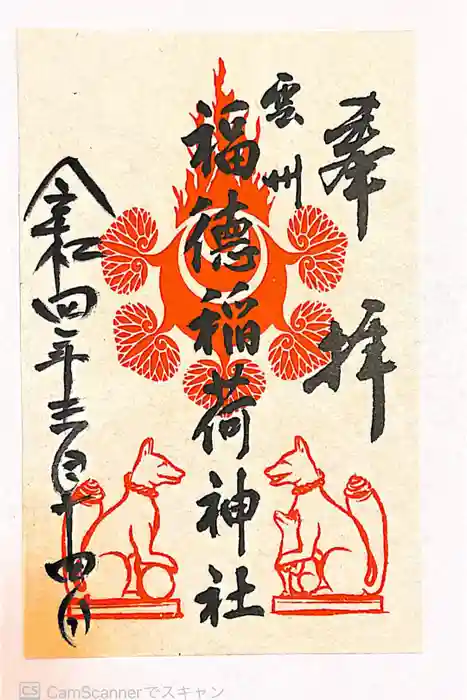 奉拝
雲州
福徳稲荷神社
令和四年三月十四日
CS CamScannerでスキャン